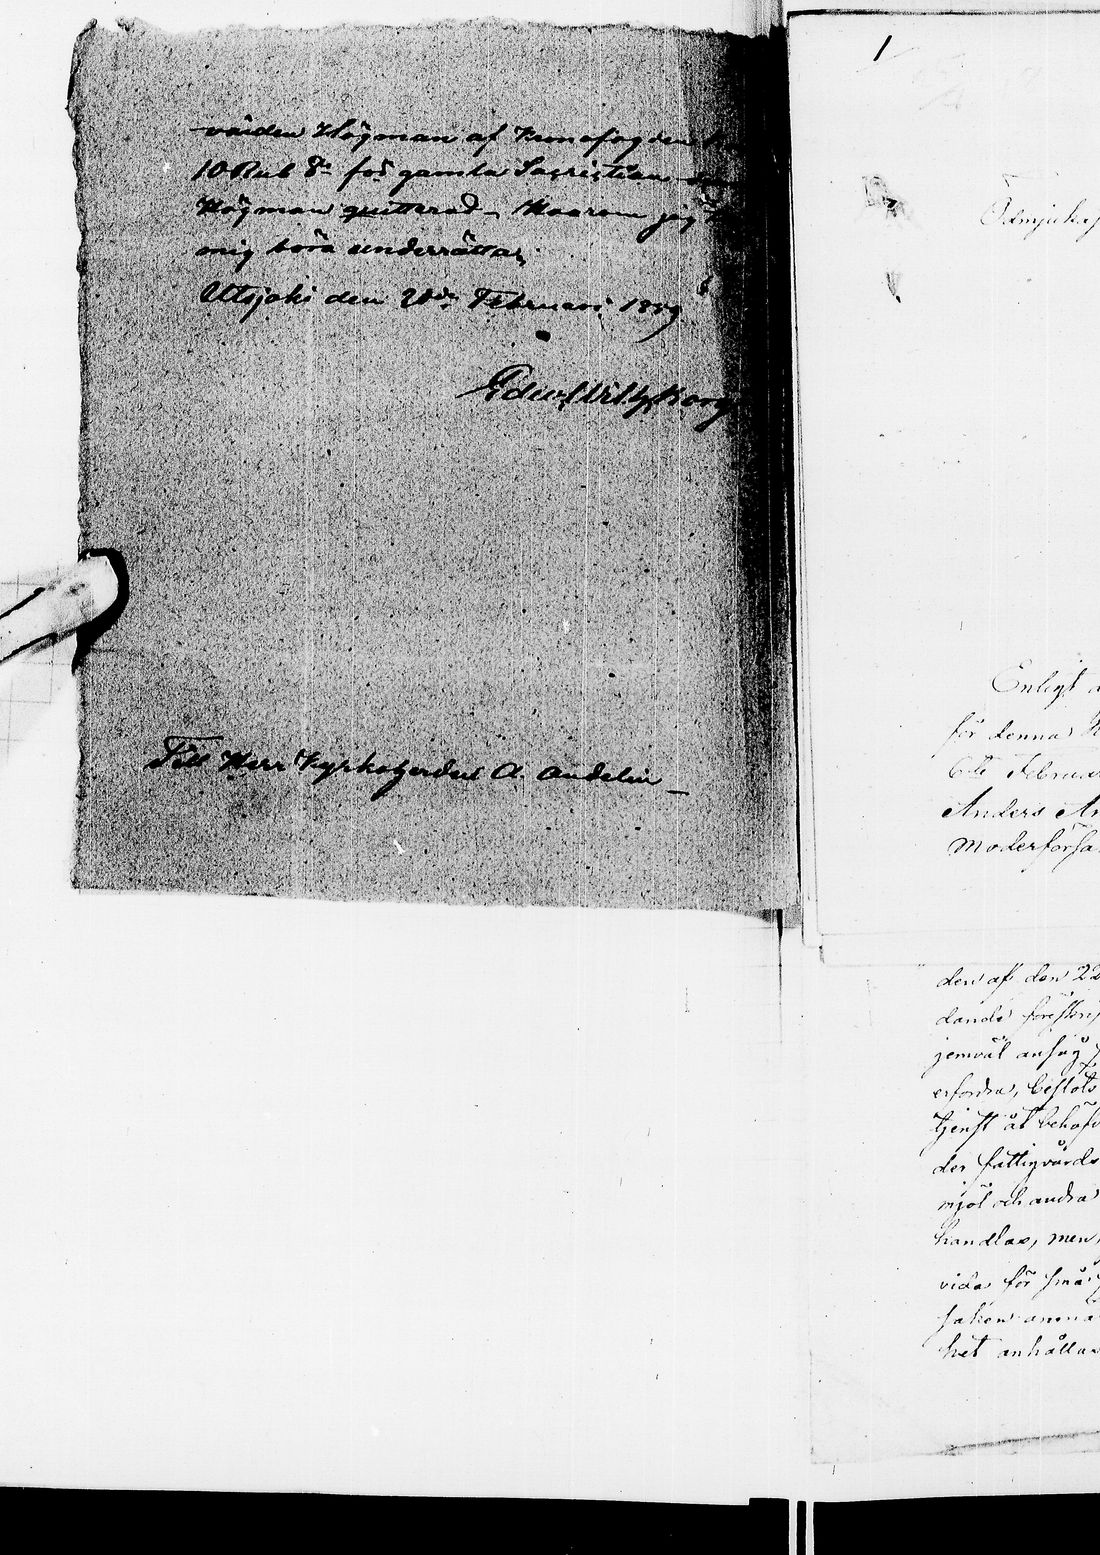 värden Högman af Kronofogden
10 Rub Sr för gamla Sacristian som
Högman quitterad – Hvarom jag
mig böra underrätta,
Utsjoki den 20de Februari 1859
Edw. Wilh. Borg
Till Herr Kyrkoherden A. Andelin –
1
Ödmjukas
Enligt
för denna
6te Februar
Anders An
Moderförsa
den af den 22
dande föreskrif
jemväl ansåg
erfordra, bestods
tjenst åt behöfv
der fattigvårds
mjöl och andra
handlas, men,
vida för små
saken anmä
het anhållas